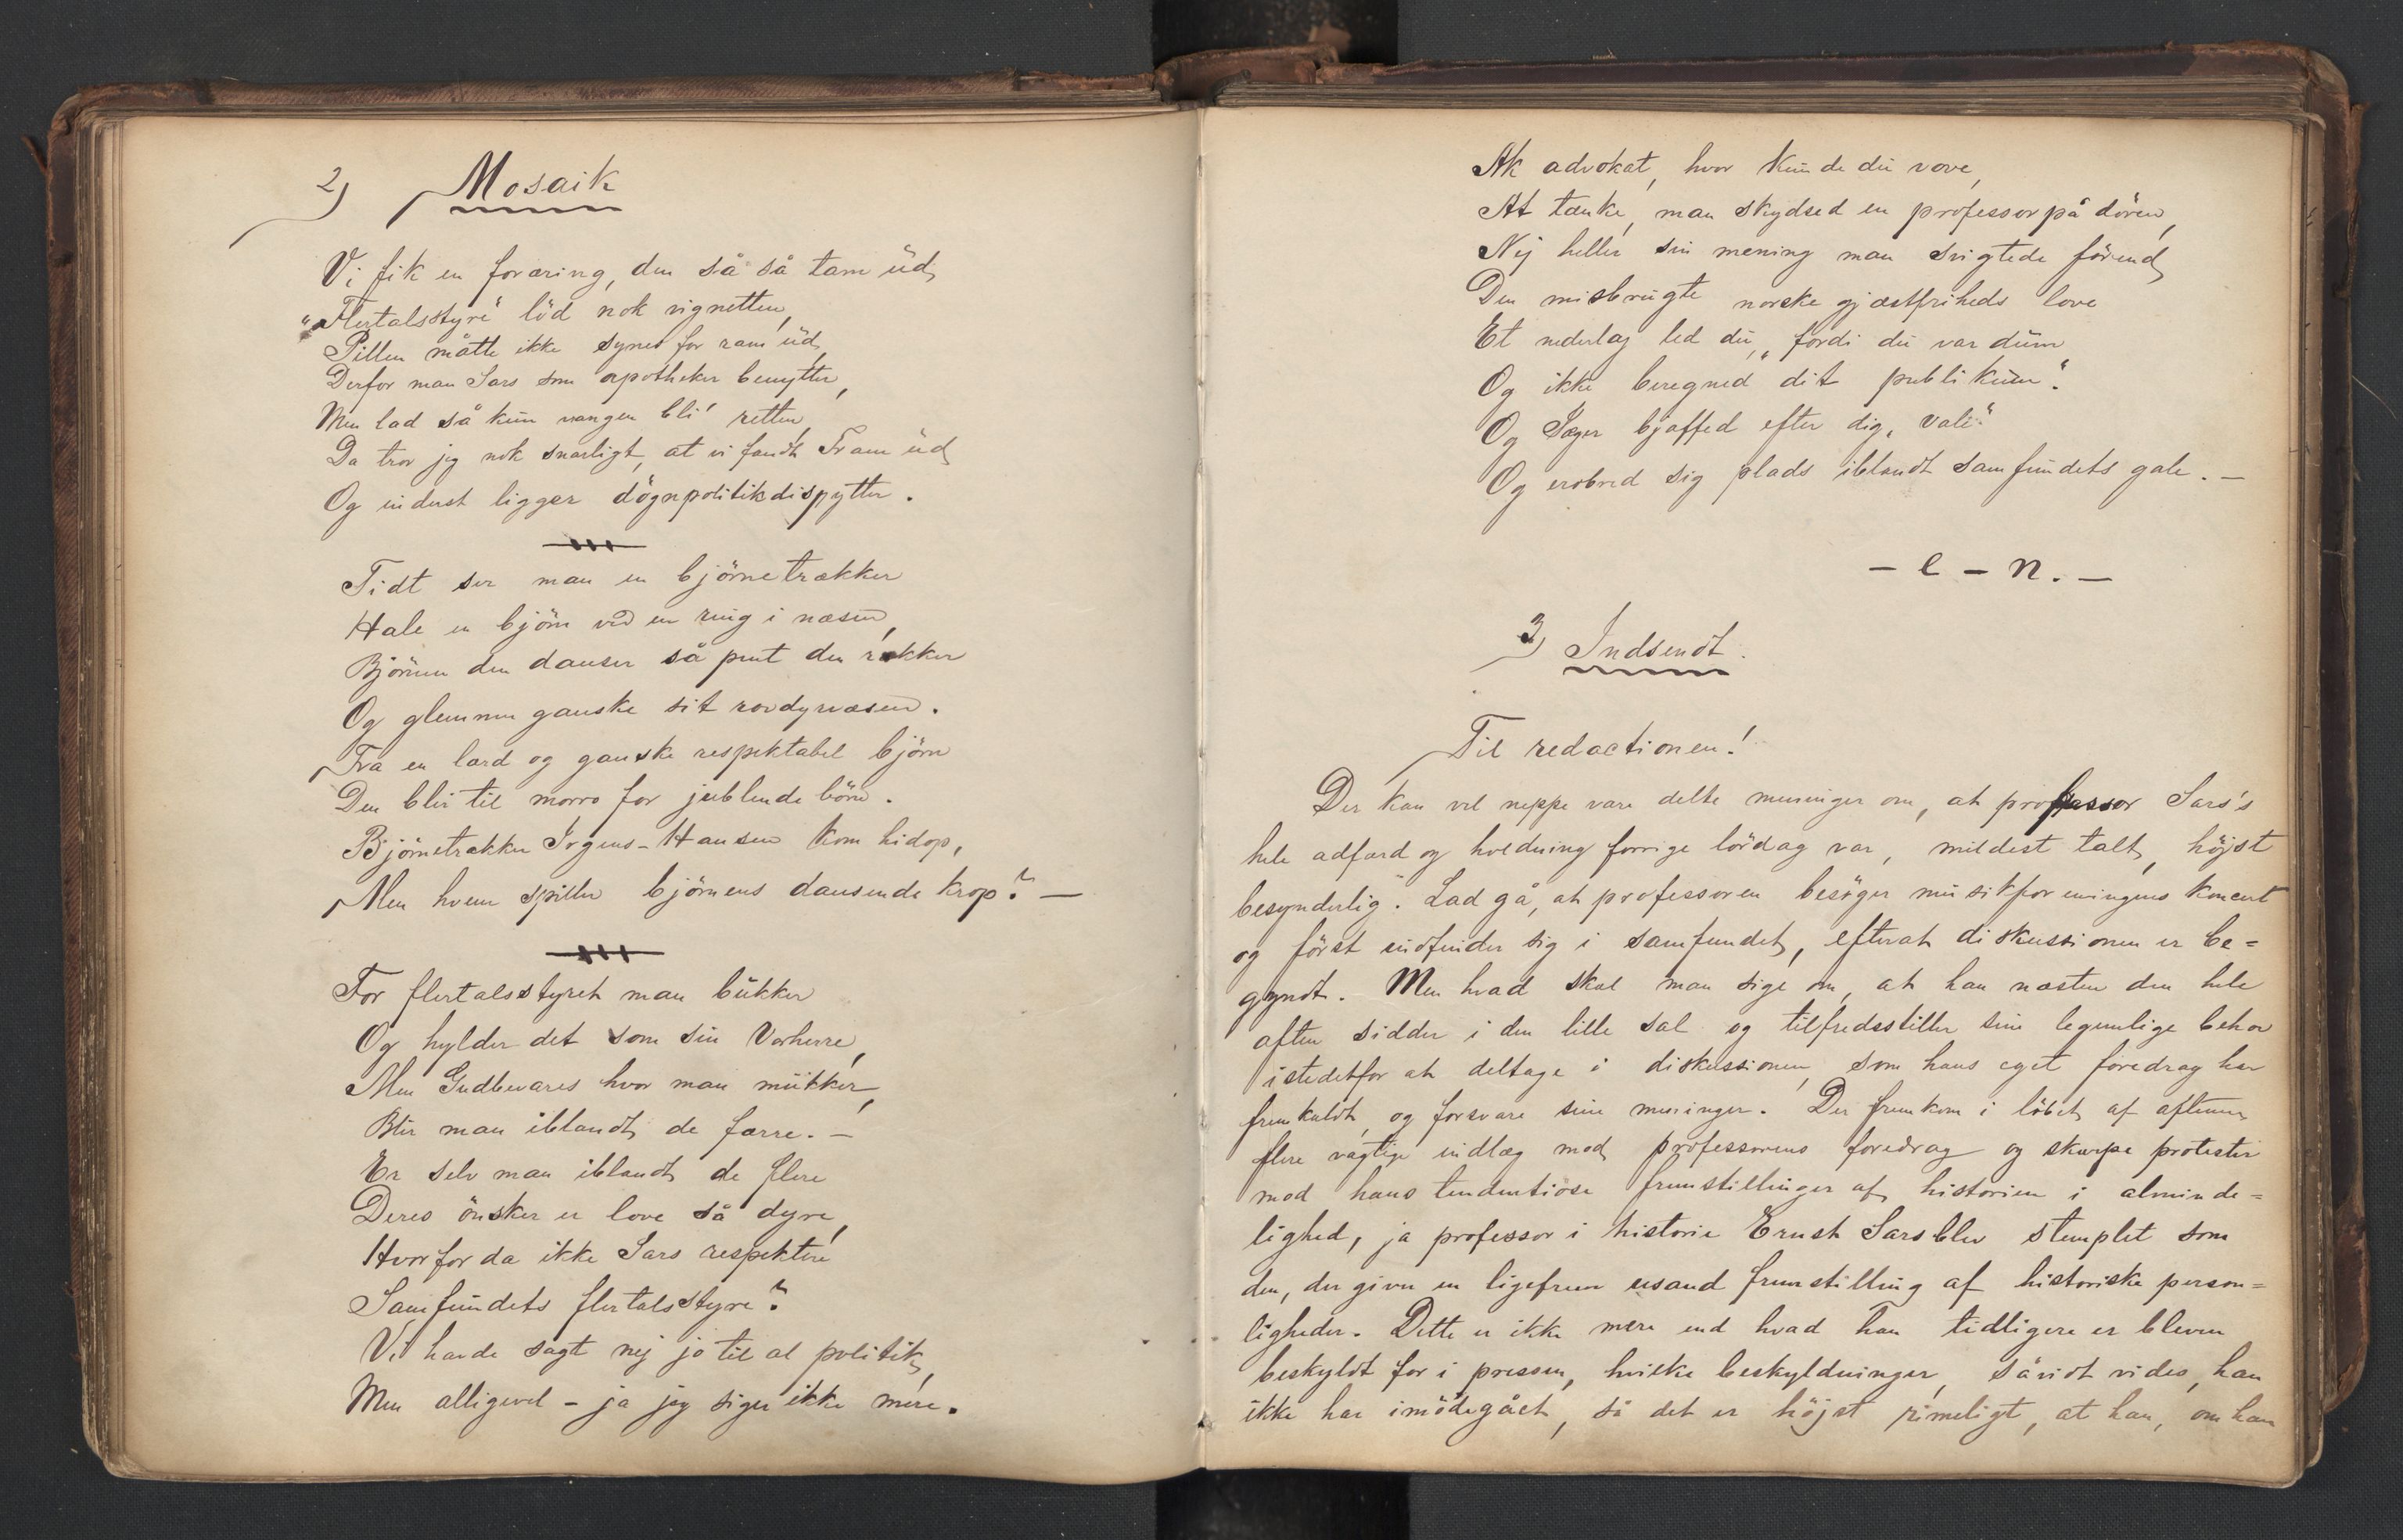 2) Mosaik
Vi fik en foræring, den så så tam ud,
"Flertalsstyre" lød nok vignetten,
Pillen måtte ikke synes for ram ud,
Derfor man Sars som apotheker benytter,
Men lad så kun vangen bli' retten,
Da tror jeg nok snarligt, at vi fandt Fram ud
Og inderst ligger døgnpolitikdispytter.
Tidt ser man en björnetrækker
Hale en björn ved en ring i næsen,
Björnen den danser så pent den rækker
Og glemmer ganske sit rovdyrvæsen.
Fra en lærd og ganske respektabel björn
Den blir til morro for jublende börn.
Björnetrækker Irgens-Hansen kom hidop,
Men hvem spiller björnens dansende krop? —
For flertalsstyret man bukker
Og hylder det som sin Vorherre,
Men Gudbevares hvor man mukker,
Blir man iblandt de færre. —
Er selv man iblandt de flere
Deres önsker er love så dyre,
Hvorfor da ikke Sars respektere
Samfundets flertalsstyre?
Vi havde sagt nej jo til al politik,
Men alligevel - ja jeg siger ikke mere.
Ak advokat, hvor kunde du vove,
At tænke, man skydsed en professor på dören,
Nej heller sin mening man svigtede förend
Den misbrugte norske gjæstfriheds love
Et nederlag led du, "fordi du var dum
Og ikke beregned dit publikum".
Og Sæger bjæffed efter dig, "vale"
Og erobred sig plads iblandt samfundets gale. —
— e — n. —
3) Indsendt.
Til redactionen!
Der kan vel neppe være delte meninger om, at professor Sars's
hele adfærd og holdning forrige lördag var, mildest talt, höjst
besynderlig. Lad gå, at professoren besöger musikforeningens koncert
og först indfinder sig i samfundet, efterat diskussionen er be=
gyndt. Men hvad skal man sige om, at han næsten den hele
aften sidder i den lille sal og tilfredsstiller sine legemlige behov
istedetfor at deltage i diskussionen, som hans eget foredrag har
fremkaldt, og forsvare sine meninger. Der fremkom i löbet af aftenen
flere vægtige indlæg mod professorens foredrag og skarpe protester
mod hans tendentiöse fremstillinger af historien i alminde=
lighed, ja professor i historie Ernst Sars blev stemplet som
den, der giver en ligefrem usand fremstilling af historiske person=
ligheder. Dette er ikke mere end hvad han tidligere er bleven
beskyldt for i pressen, hvilke beskyldninger, såvidt vides, han
ikke har imödegået, så det er höjst rimeligt, at han, om han